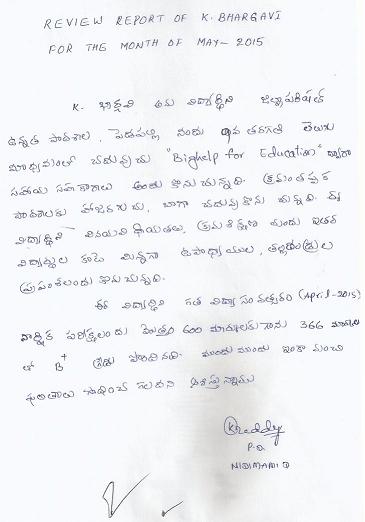 REVIEW REPORT OF K. BHARGAVI
FOR THE MONTH OF MAY- 2015
K. భార్గవి అను విద్యార్థిని జిల్లాపరిషత్
ఉన్నత పాఠశాల, పెడపల్లి నందు 9వ తరగతి తెలుగు
మాధ్యమంలో చదువుచు "Bighelp for Education" ద్వారా
సహాయ సహకారాలు అందుకొనుచున్నది. క్రమంతప్పక
పాఠశాలకు హాజరగుచు, బాగా చదువుకొనుచున్నది. ఈ
విద్యార్థిని వినయవిధేయతలు, క్రమశిక్షణ యందు ఇతర
విద్యార్థుల కంటే మిన్నగా ఉపాధ్యాయుల, తల్లిదండ్రుల
ప్రశంసలందుకొనుచున్నది.
ఈ విద్యార్థిని గత విద్యా సంవత్సరం (April-2015)
వార్షిక పరీక్షలందు మొత్తం 600 మార్కులకు గాను 366 మార్కులు
తో B+ గ్రేడు పొందినది. ముందు ముందు ఇంకా మంచి
ఫలితాలు సాధించగలదని ఆశిస్తున్నాము
KReddy
P.O.
NIDIMAMIDI